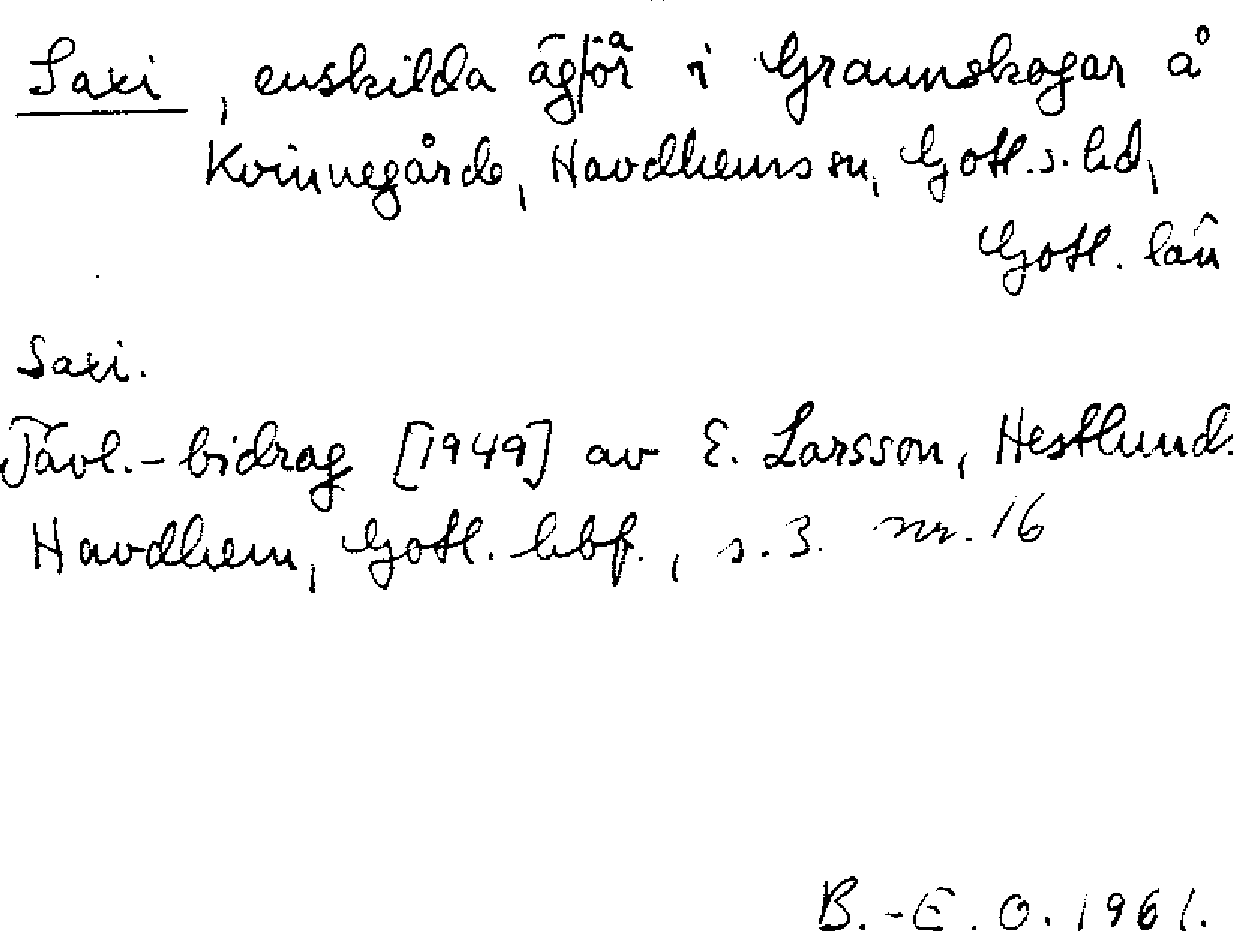 Saxi, enskilda ägor i Graunskogar å
Kvinnegårde, Havdhems sn, Gotl. s. hd,
Gotl. län
Saxi.
Tävl.-bidrag [1949] av E. Larsson, Hestlunds
Havdhem, Gotl. hbf., s. 3. nr. 16
B.-E. O. 1961.